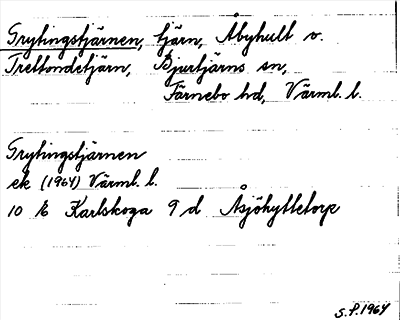 Grytingstjärnen, tjärn, Åbyhult v.
Trettondetjärn, Bjurtjärns sn,
Färnebo hd, Värml. l.
Grytingstjärnen
ek (1964) Värml. l.
10 E Karlskoga 9 d Åsjöhyttetorp
S.P. 1964